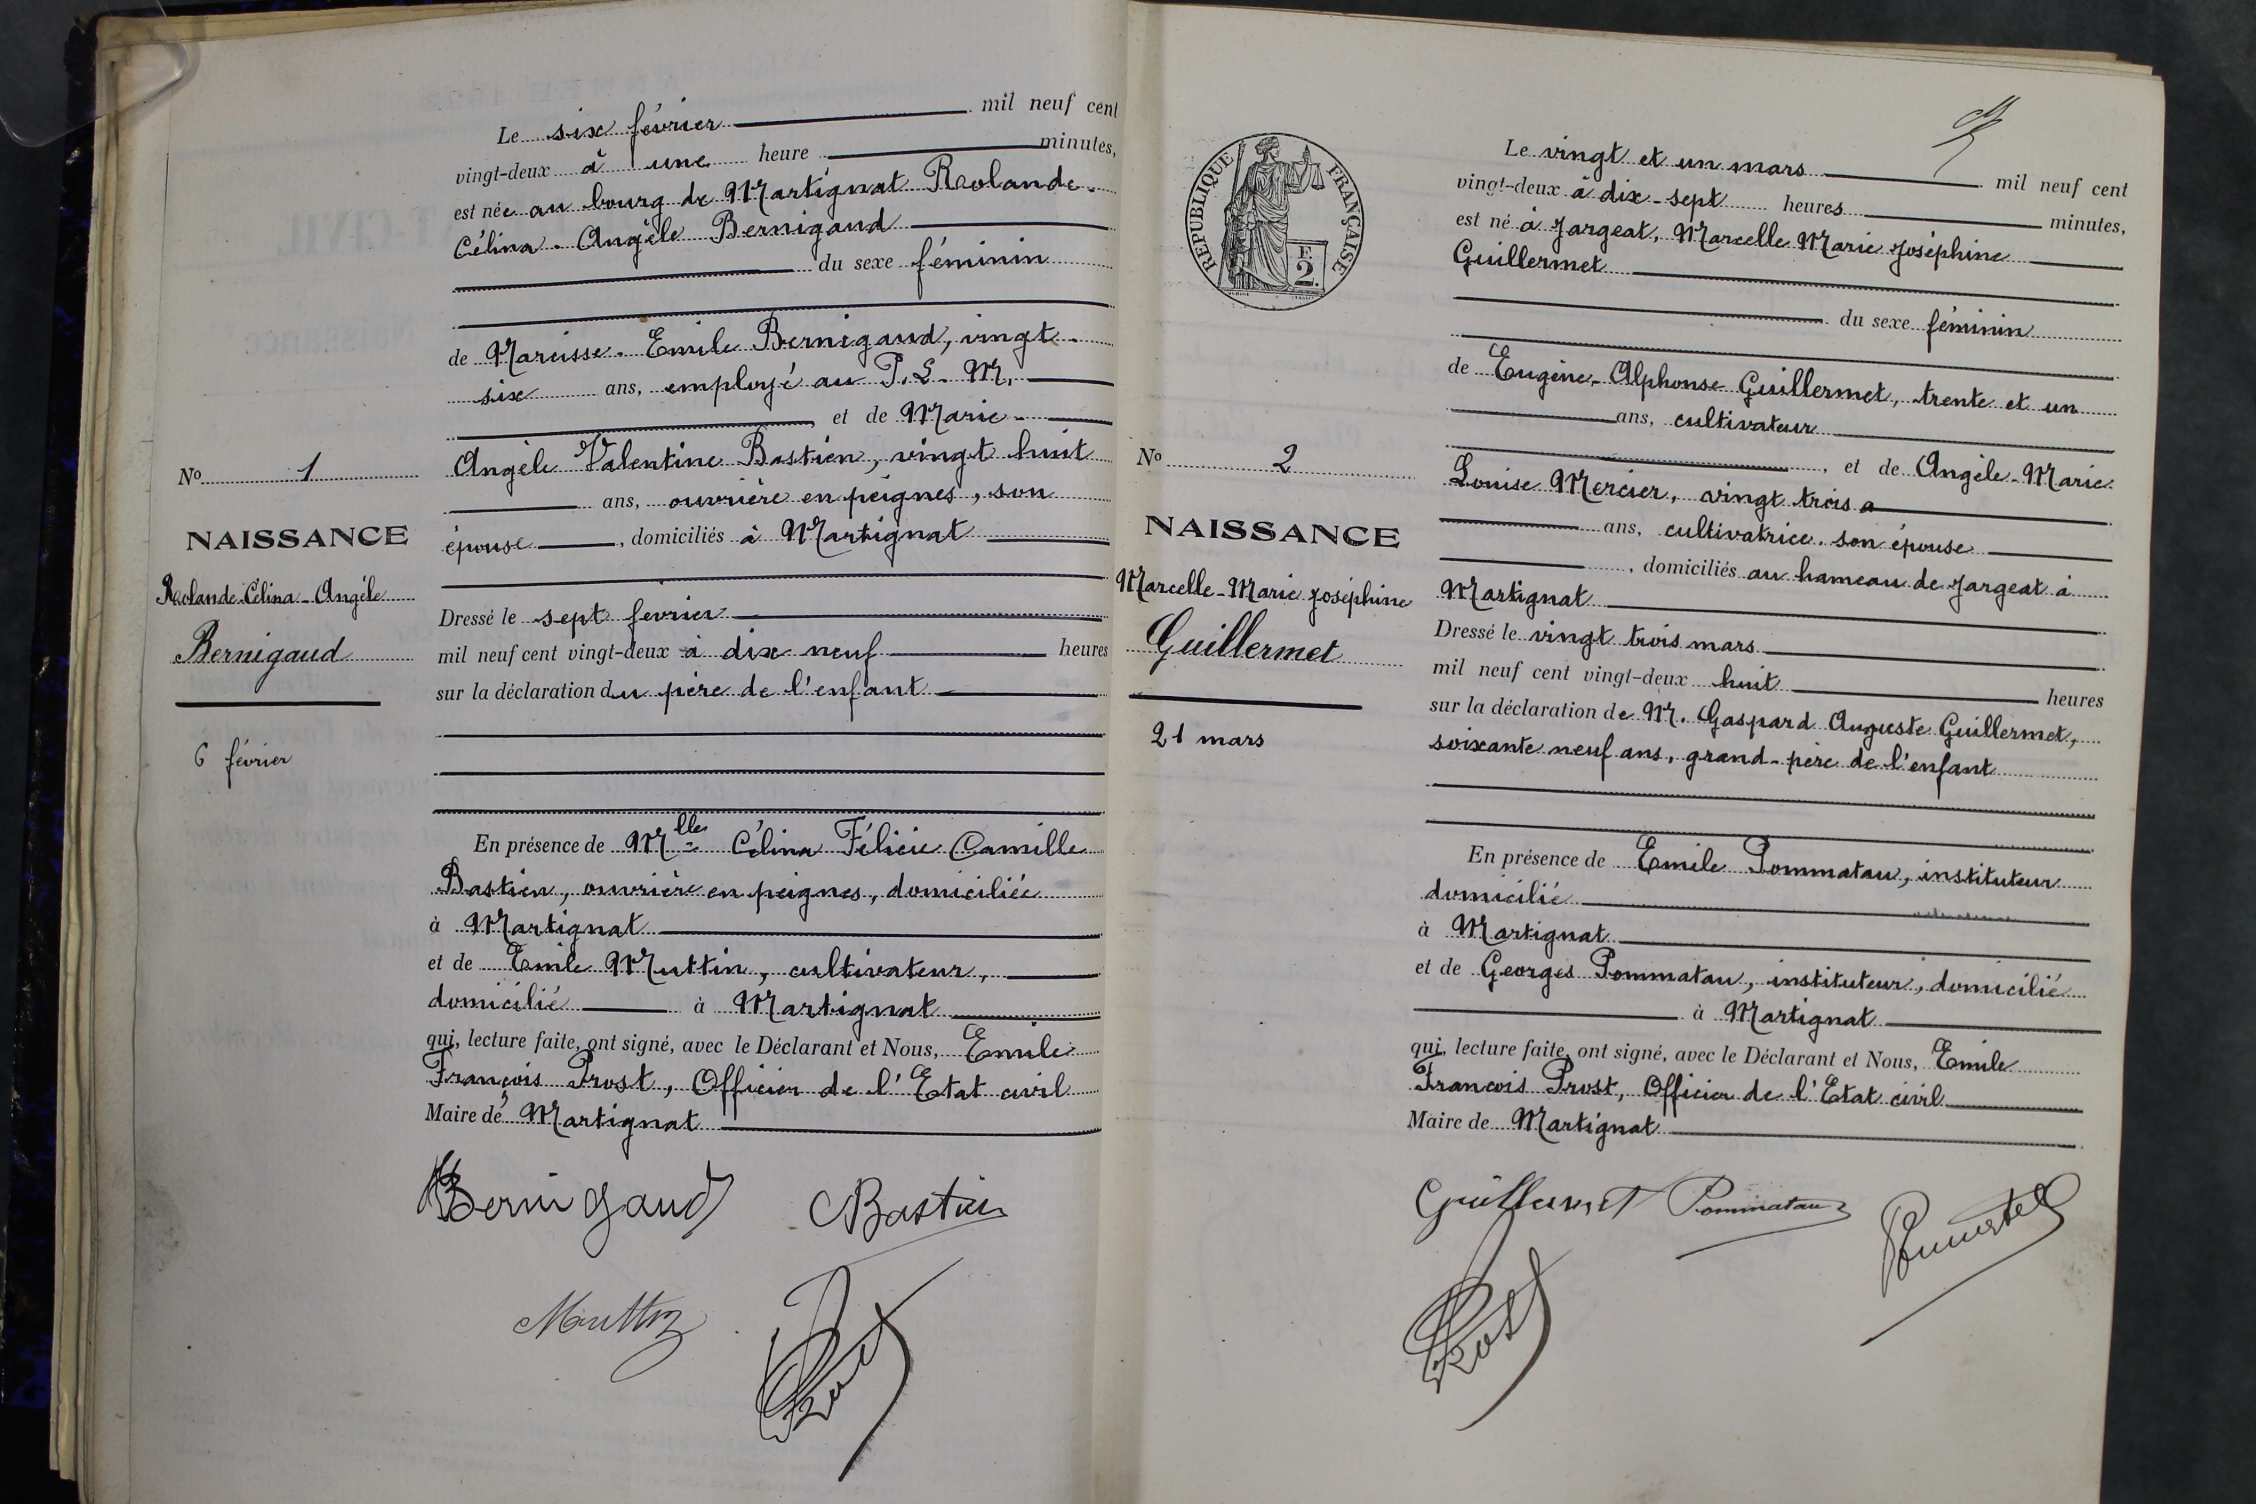 Le six février mil neuf cent
vingt-deux à une heure minutes,
est née au bourg de Martignat Rolande-
Célina-Angèle Bernigaud
du sexe féminin
de Narcisse-Emile Bernigaud, vingt-
six ans, employé au P.L.M.
et de Marie-
Angèle Valentine Bastien, vingt huit
ans, ouvrière en peignes, son
épouse, domiciliés à Martignat
Dressé le sept fevrier
mil neuf cent vingt-deux à dix neuf heures
sur la déclaration du père de l'enfant
En présence de Mlle Célina Félicie Camille
Bastien, ouvrière en peignes, domiciliée
à Martignat
et de Emile Muttin, cultivateur,
domicilié à Martignat
qui, lecture faite, ont signé, avec le Déclarant et Nous, Emile
François Prost, Officier de l'Etat civil
Maire de Martignat
No 1
NAISSANCE
Rolande-Célina-Angèle
Bernigaud
6 février
Bernigaud CBastien
Muttin
Prost
RÉPUBLIQUE FRANÇAISE
F.
2.
Le vingt et un mars mil neuf cent
vingt-deux à dix-sept heures minutes,
est né à Jargeat, Marcelle Marie Joséphine
Guillermet
du sexe féminin
de Eugène-Alphonse Guillermet, trente et un
ans, cultivateur
, et de Angèle-Marie-
Louise Mercier, vingt trois a
ans, cultivatrice. son épouse
, domiciliés au hameau de Jargeat à
Martignat
Dressé le vingt trois mars
mil neuf cent vingt-deux huit heures
sur la déclaration de M. Gaspard Auguste Guillermet,
soixante neuf ans, grand-père de l'enfant
En présence de Emile Pommatau, instituteur
domicilié
à Martignat
et de Georges Pommatau, instituteur, domicilié
à Martignat
qui, lecture faite, ont signé, avec le Déclarant et Nous, Emile
Francois Prost, Officier de l'Etat civil
Maire de Martignat
No 2
NAISSANCE
Marcelle-Marie Joséphine
Guillermet
21 mars
Guillermet Pommatau
Prost